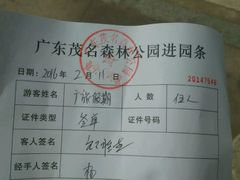 广东茂名森林公园进园条
日期：2016年2月11日 20147546
游客姓名 广旅假期 人数 位人
证件类型 签单 证件号码
客人签名
经手人签名 杨